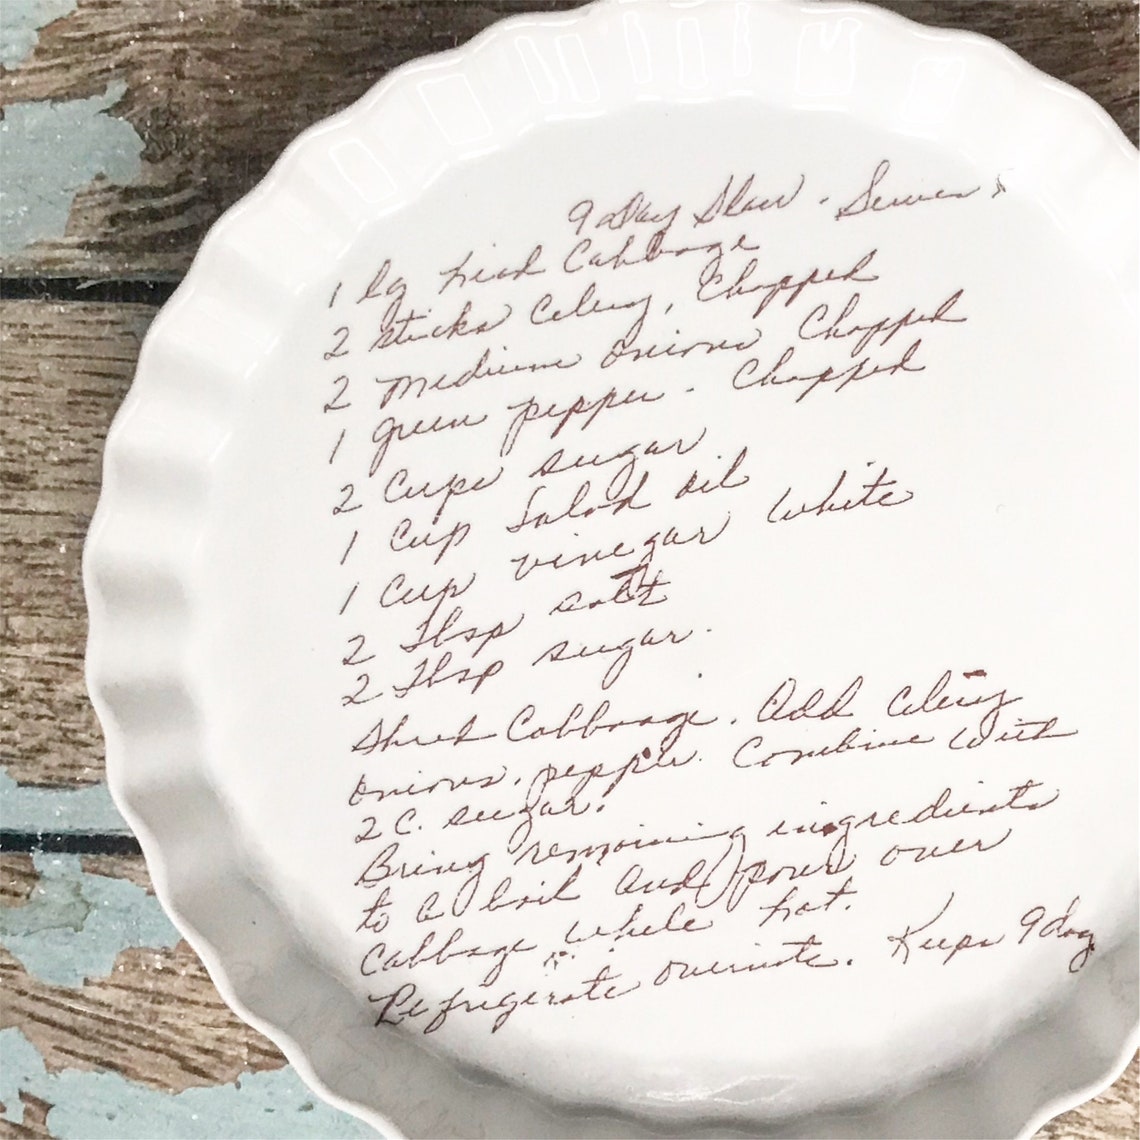 9 Day Slaw -
1 lg Head Cabbage
2 sticks Celery, Chopped
2 medium onions Chopped
1 green pepper - Chopped
2 Cups sugar
1 Cup Salad oil
1 Cup vinegar White
2 Tbsp salt
2 Tbsp sugar.
Shred Cabbage. Add Celery
onions, pepper. Combine with
2 C. sugar.
Bring remaining ingredients
to a boil and pour over
Cabbage while hot.
Refrigerate overnite. Keeps 9 day